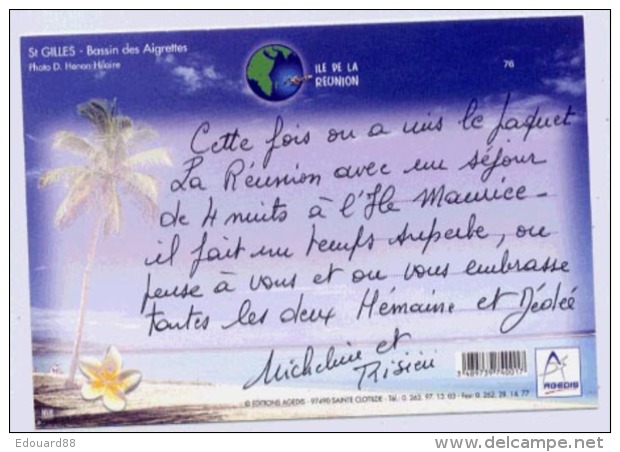 St GILLES - Bassin des Aigrettes
Photo D. Henon Hilaire
ILE DE LA
RÉUNION
76
Cette fois on a mis le paquet
La Réunion avec un séjour
de 4 nuits à l'Ile Maurice -
il fait un temps superbe, on
pense à vous et on vous embrasse
toutes les deux et Dédée
Micheline et
3 489739 740017
AGEDIS
© EDITIONS AGEDIS - 97490 SAINTE CLOTILDE - Tél. 0. 262. 97. 13. 03 - Fax: 0. 262. 28. 14. 77
Edouard88
delcampe.net